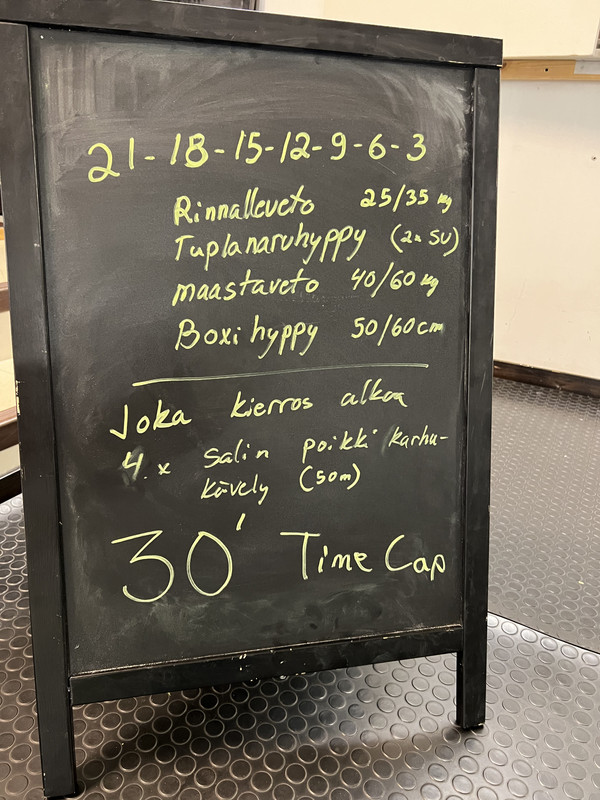 21-18-15-12-9-6-3
Rinnalleveto 25/35 kg
Tuplanaruhyppy (2x SU)
maastaveto 40/60 kg
Boxi hyppy 50/60cm
Joka kierros alkaa
4.x salin poikki karhu-
kävely (50m)
30' Time Cap